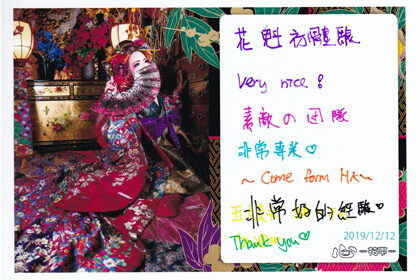 花魁初體驗
Very nice!
素敵の团隊
非常專業♡
~ Come form HK~
非常好的經驗♡
Thank you♡
2019/12/12